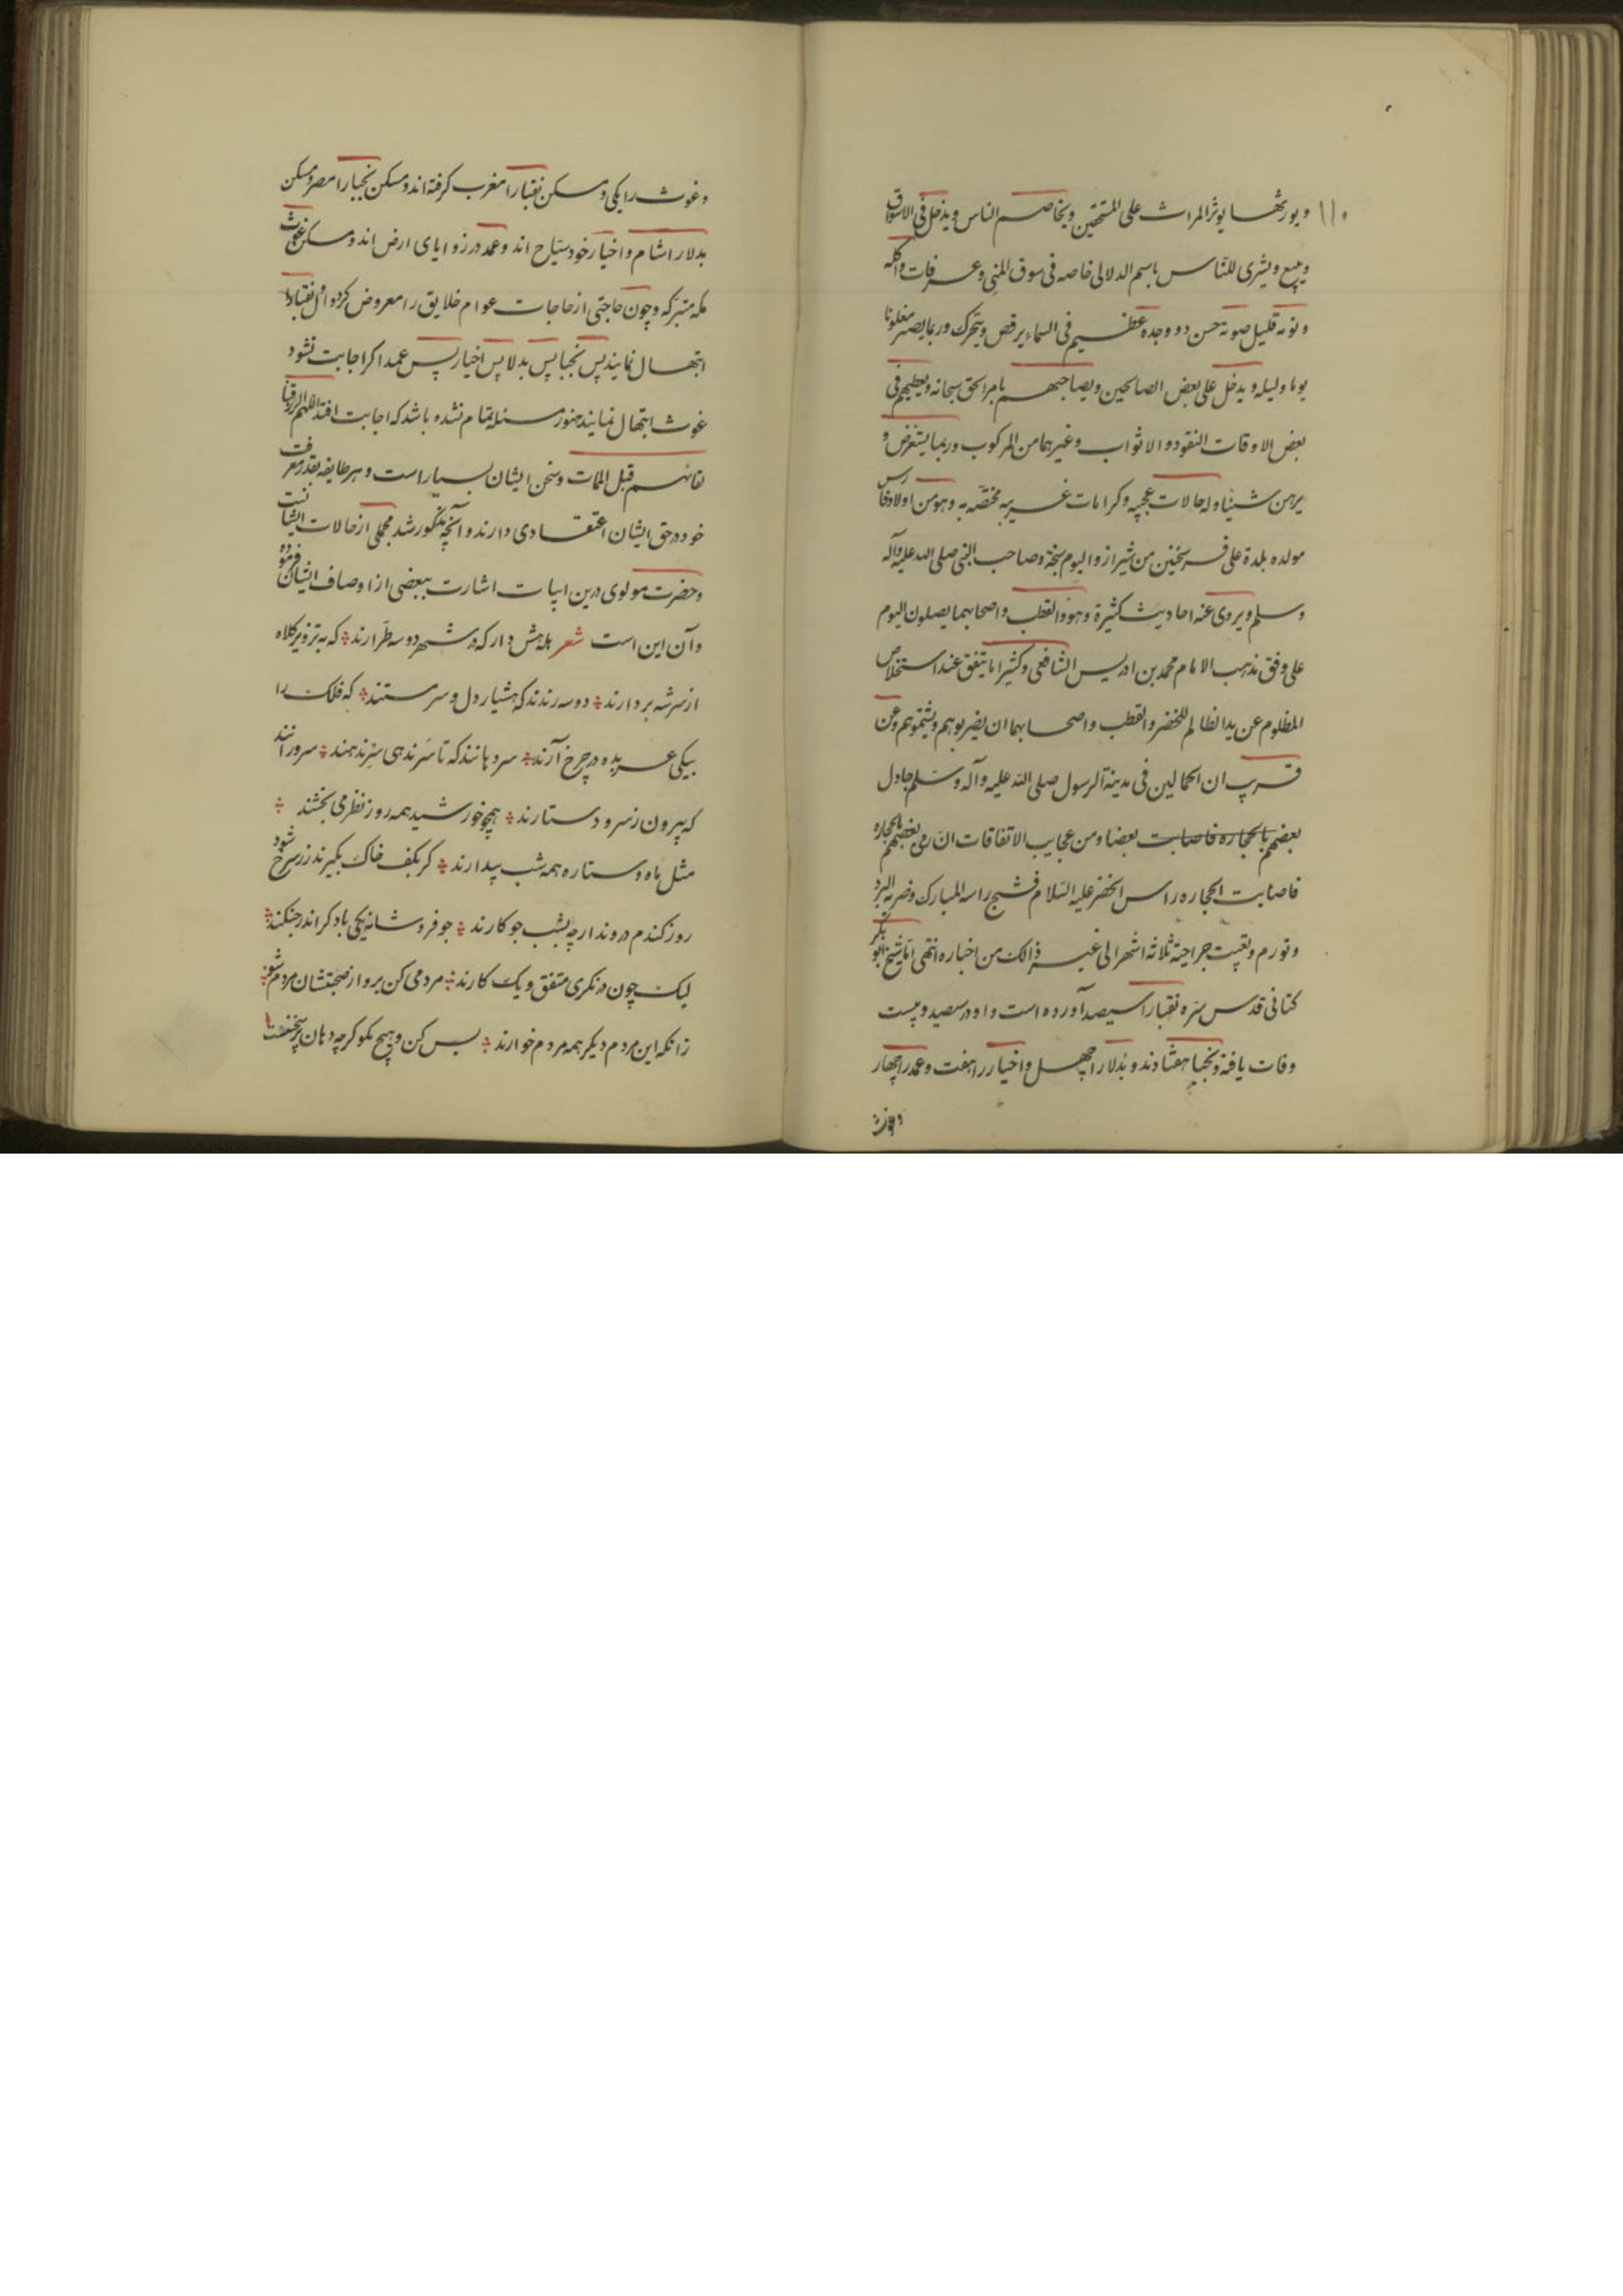 ۱۱۰
و یورثها یوثر المراث علی المستحقین و یخاصم الناس و یدخل فی الاسواق
و یبیع و یشری للناس باسم الدلالی خاصه فی سوق المنی و عرفات و اکله
و نومه قلیل صوته حسن دو وجده عظیم فی السماء یرقص و یتحرک و ربما یصیر مغلوبا
یوما و لیله و یدخل علی بعض الصالحین و یصاحبهم بامر الحق سبحانه و یعطیهم فی
بعض الاوقات النقود و الاثواب و غیرهما من المرکوب و ربما یستقرض و
یرهن شیئا و له حالات عجیبه و کرامات غریبه مختصه به و هو من اولاد فارس
مولده بلدة علی فرسخین من شیراز و الیوم بمکة و صاحب النبی صلی الله علیه و آله
و سلم و یروی عنه احادیث کثیرة و هو و القطب و اصحابهما یصلون الیوم
علی وفق مذهب الامام محمد بن ادریس الشافعی و کثیرا ما یتفق عند استخلاص
المظلوم عن ید الظالم للخضر و القطب و اصحابهما ان یضربوهم و یشتموهم و عن
قریب ان الحمالین فی مدینة الرسول صلی الله علیه و آله و سلم جادل
بعضهم بالحجاره فاصابت بعضا و من عجایب الاتفاقات ان رمی بعضهم بالحجاره
فاصابت الحجاره راس الخضر علیه السلام فشج راسه المبارک و ضربه البرد
و تورم و بقیت جراحته ثلاثة اشهر الی غیر ذالک من اخباره انتهی اما شیخ ابو بکر
کتانی قدس سره نقبا را سیصد آورده است و او در سیصد و بیست
وفات یافته و نجبا هفتادند و بدلا را چهل و اخیار را هفت و عمد را چهار
و غوث
و غوث را یکی و مسکن نقبا را مغرب گرفته اند و مسکن نجبا را مصر و مسکن
بدلا را شام و اخیار خود سیاح اند و عمد در زوایای ارض اند و مسکن غوث
مکه متبرکه و چون حاجتی از حاجات عوام خلایق را معروض کردد اول نقبا را
ابتهال نمایند پس نجبا پس بدلا پس اخیار پس عمد اکر اجابت نشود
غوث ابتهال نمایند هنوز مسئله تمام نشده باشد که اجابت افتد اللهم ارزقنا
لقائهم قبل الممات و سخن ایشان بسیار است و هر طایفه بقدر معرفت
خود در حق ایشان اعتقادی دارند و آنچه مذکور شد مجملی از حالات ایشانست
و حضرت مولوی درین ابیات اشارت ببعضی از اوصاف ایشان فرموده
و آن این است شعر هله هش دار که در شهر دو سه طرارند که به تزویر کلاه
از سر شه بر دارند دو سه رندند که هشیار دل و سر مستند که فلک را
بیکی عربده در چرخ آرند سر دهانند که تا سر ندهی سر ندهند سرورانند
که بیرون ز سر و دستارند همچو خورشید همه روز نظر می بخشند
مثل ماه و ستاره همه شب بیدارند کر بکف خاک بکیرند زر سرخ شود
روز کندم دروند ار چه بشب جو کارند جو فروشانیکی باد کر اندر جنکند
لیک چون در نکری متفق و یک کارند مردمی کن برو از صحبتشان مردم شو
زانکه این مردم دیکر همه مردم خوارند بس کن و هیچ مکو کرچه دهان پر سخنست